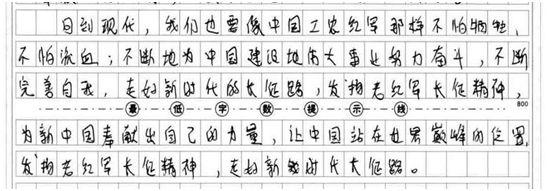 回到现代，我们也要像中国工农红军那样不怕牺牲，
不怕流血；不断地为中国建设地伟大事业努力奋斗，不断
完善自我，走好新时代的长征路，发扬老红军长征精神，
最低字数提示线 800
为新中国奉献出自己的力量，让中国站在世界巅峰的位置，
发扬老红军长征精神，走好新时代大长征路。